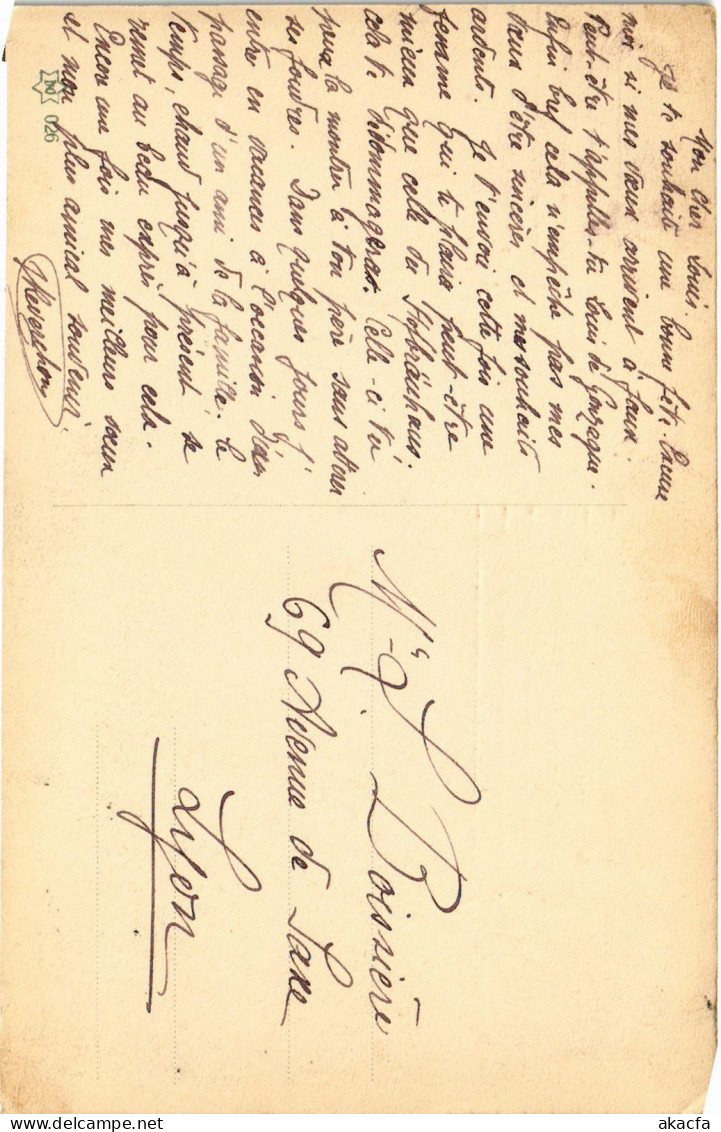 Mon cher Louis.
Je te souhaite une bonne fête. Excuse
moi si mes vœux arrivent à faux.
Peut-être t'appelles-tu Louis de Gonzague.
Enfin bref cela n'empêche pas mes
vœux d'être sincères et mes souhaits
ardents. Je t'envoie cette fois une
femme qui te plaira peut-être
mieux que celle du Hofbräuhaus.
cela te dédommagera. Celle-ci tu
peux la montrer à ton père sans attirer
ses foudres. Dans quelques jours j'
entre en vacances à l'occasion d'un
passage d'un ami de la famille. le
temps, chaud jusqu'à présent se
remet au beau exprès pour cela.
Encore une fois mes meilleurs vœux
et mon plus amical souvenir.
026
Mr L. Boissière
69 Avenue de Saxe
Lyon
akacfa
delcampe.net